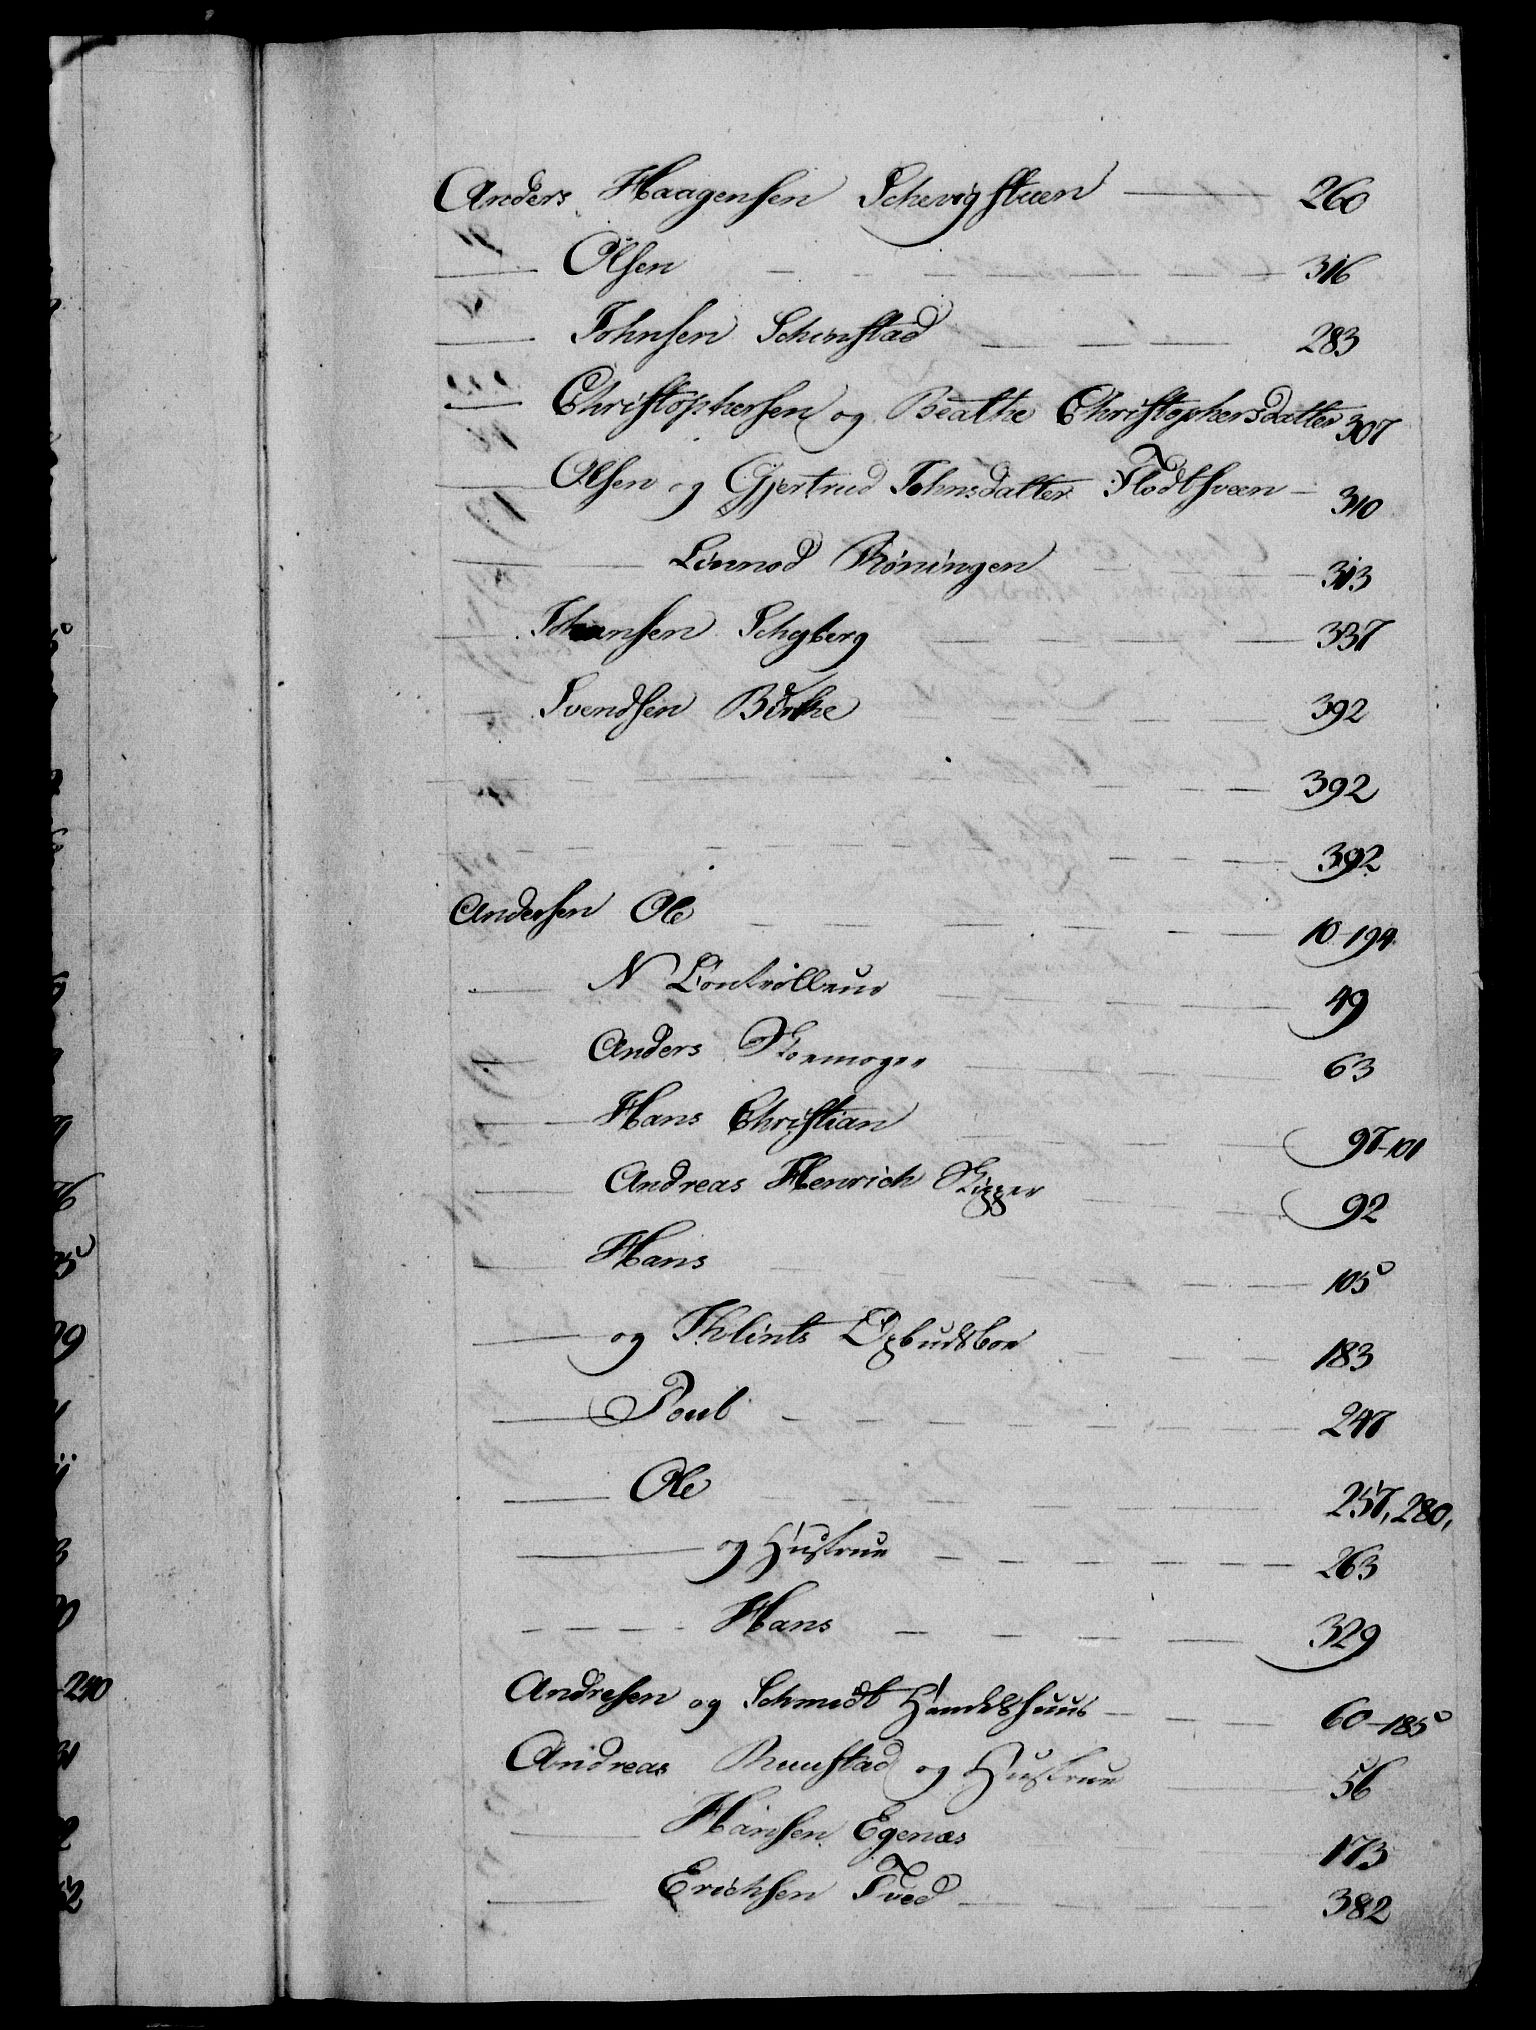 Anders Haagensen Schevigstuen — 260
— Olsen — 316
— Johnsen Schinstad — 283
— Christophersen og Beathe Christophersdatter 307
— Olsen og Gjertrud Johnsdatter Flodtsveen — 310
— Linnod Röningen — 313
— Johansen Schyberg — 337
— Svendsen Birke — 392
— 392
— 392
Andersen Ole — 10-194.
— N Controlleur — 49
— Anders Kormoger — 63
— Hans Christian — 97-101
— Andreas Henrich Kigger — 92
— Hans — 105
— og Klints Opbudsboe — 183
— Poul — 247
— Ole — 257, 280,
— og Hustrue — 263
— Hans — 329
Andresen og Schmidt Handelshuus — 60-185
Andreas Ruustad og Hustrue — 56
— Hansen Egenæs — 173
— Erichsen Tved — 382
240